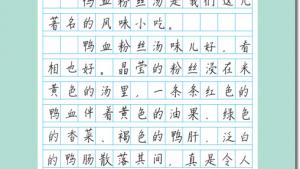 鸭血粉丝汤是我们这儿
著名的风味小吃。
鸭血粉丝汤味儿好，看
相也好。晶莹的粉丝浸在米
黄色的汤里，一条条红色的
鸭血伴着黄色的油果、绿色
的香菜、褐色的鸭肝、泛白
的鸭肠散落其间，真是令人